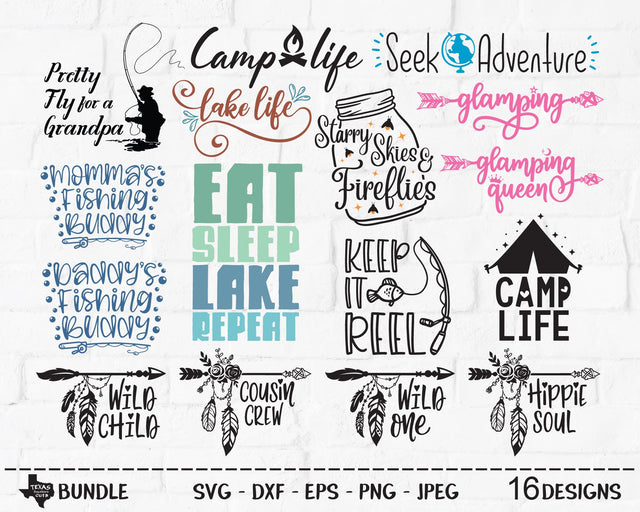 Pretty
Fly for a
Grandpa
Camp life
Seek Adventure
lake life
Starry Skies &
Fireflies
glamping
glamping
queen
Momma's
Fishing
Buddy
Daddy's
Fishing
Buddy
EAT
SLEEP
LAKE
REPEAT
KEEP
IT
REEL
CAMP
LIFE
WILD
CHILD
COUSIN
CREW
WILD
ONE
HIPPIE
SOUL
TEXAS
CUTS
BUNDLE
SVG - DXF - EPS - PNG - JPEG
16 DESIGNS